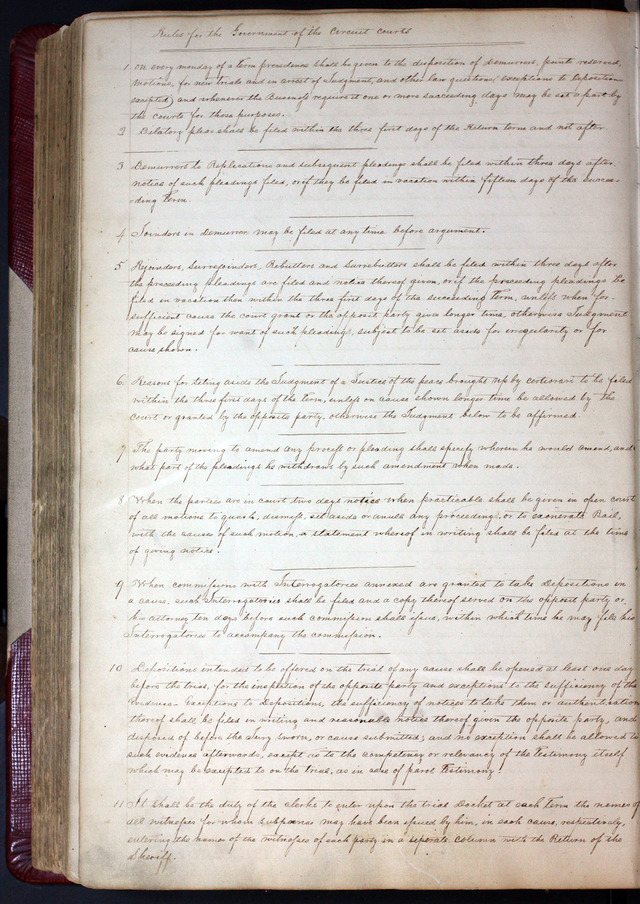 Rules for the Government of the Circuit Courts
1 On every monday of a term precedence shall be given to the disposition of Demurrers, points reserved,
Motions, for new trials and in arrest of Judgment, and other law questions (exceptions to deposition
excepted) and whenever the Business requires it one or more succeeding days may be set apart by
the courts for those purposes.
2 Dilatory pleas shall be filed within the three first days of the Return term and not after
3 Demurrers to Replications and subsequent pleadings shall be filed within three days after
notice of such pleadings filed, or if they be filed in vacation within fifteen days of the succee-
ding term.
4 Joinders in Demurrer may be filed at any time before argument.
5 Rejoinders, Surrejoinders, Rebutters and Surrebutters shall be filed within three days after
the preceeding pleadings are filed and notice thereof given, or if the preceeding pleadings be
filed in vacation then within the three first days of the succeeding Term, unless when for
sufficient cause the court grant or the opposit party give longer time, otherwise Judgment
may be signed for want of such pleading, subject to be set aside for irregularity or for
cause shown.
6 Reasons for seting aside the Judgment of a Justice of the peace brought up by certiorari to be filed
within the three first days of the term, unless on cause shown longer time be allowed by the
court or granted by the opposite party, otherwise the Judgment below to be affirmed
7 The party moving to amend any process or pleading shall specify wherein he would amend, and
what part of the pleadings he withdraws by such amendment when made.
8 When the parties are in court two days notice when practicable shall be given in open court
of all motions to quash, dismiss, set aside or annull any proceeding, or to exonerate Bail,
with the causes of such motion, a statement whereof in writing shall be filed at the time
of giving notice.
9 When commissions with Interrogatories annexed are granted to take Depositions in
a cause, such Interrogatories shall be filed and a copy thereof served on the opposit party or
his attorney ten days before such commission shall issue, within which time he may file his
Interrogatories to accompany the commission.
10 Depositions intended to be offered on the trial of any cause shall be opened at least one day
before the trial, for the inspection of the opposite party and exceptions to the sufficiency of the
evidence exceptions to Depositions, the sufficiency of notices to take them or authentication
thereof shall be filed in writing and reasonable notice thereof given the opposite party, and
disposed of before the Jury sworn, or cause submitted, and no exception shall be allowed to
such evidence afterwards, except as to the competency or relevancy of the testimony itself
which may be excepted to on the trial, as in case of parol testimony.
11 It shall be the duty of the clerks to enter upon the trial Docket at each term the names of
all witnesses for whom subpoenas may have been issued by him, in each cause, respectively,
entering the names of the witnesses of each party in a seperate column with the Return of the
Sheriff.